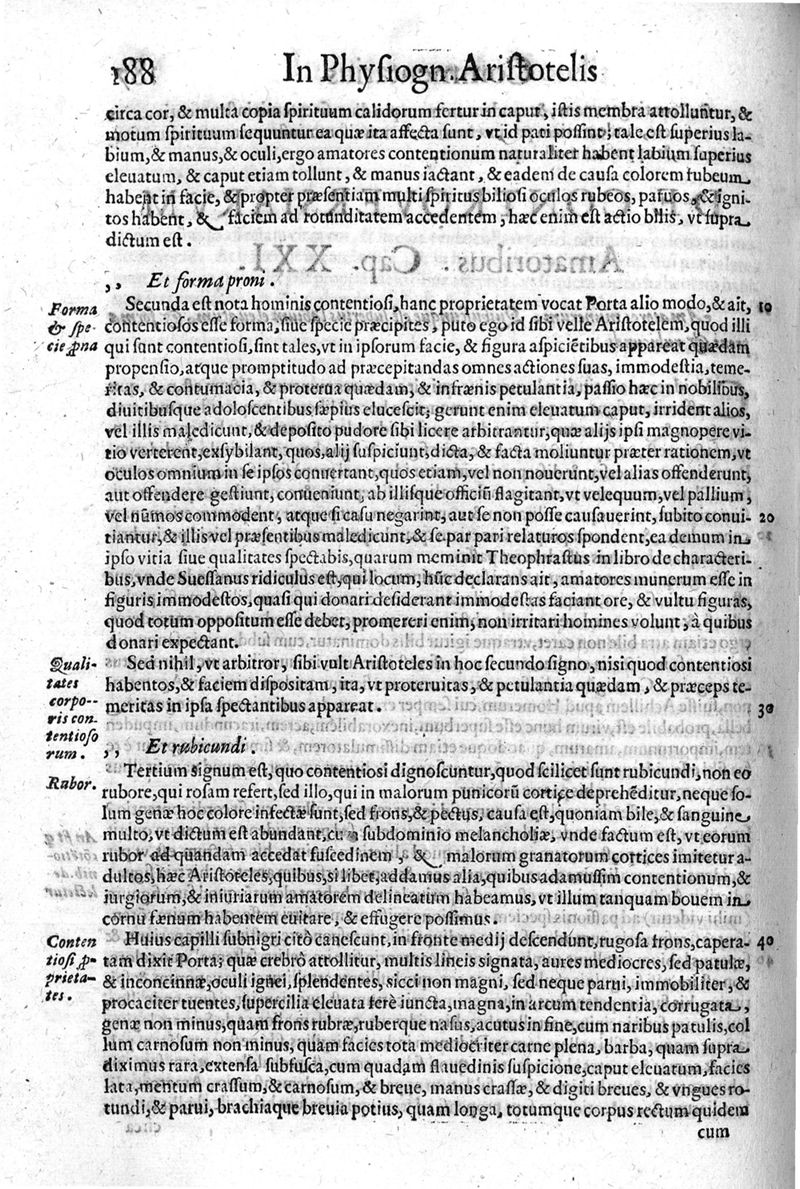 188 In Physiogn. Aristotelis
circa cor, & multa copia spirituum calidorum fertur in caput, istis membra attolluntur, &
motum spirituum sequuntur ea quæ ita affecta sunt, vt id pati possint; tale est superius la-
bium, & manus, & oculi, ergo amatores contentionum naturaliter habent labium superius
eleuatum, & caput etiam tollunt, & manus iactant, & eadem de causa colorem rubeum
habent in facie, & propter præsentiam multi spiritus biliosi oculos rubeos, paruos, & igni-
tos habent, & faciem ad rotunditatem accedentem, hæc enim est actio bilis, vt supra
dictum est.
,, Et forma proni.
Forma
& spe-
cie p̱na
Secunda est nota hominis contentiosi, hanc proprietatem vocat Porta alio modo, & ait, 10
contentiosos esse forma, siue specie præcipites, puto ego id sibi velle Aristotelem, quod illi
qui sunt contentiosi, sint tales, vt in ipsorum facie, & figura aspiciẽtibus appareat quædam
propensio, atque promptitudo ad præcepitandas omnes actiones suas, immodestia, teme-
ritas, & contumacia, & proterua quædam, & infrænis petulantia, passio hæc in nobilibus,
diuitibusque adoloscentibus sæpius elucescit; gerunt enim eleuatum caput, irrident alios,
vel illis maledicunt, & deposito pudore sibi licere arbitrantur, quæ alijs ipsi magnopere vi-
tio verterent, exsybilant, quos, alij suspiciunt, dicta, & facta moliuntur præter rationem, vt
oculos omnium in se ipsos conuertant, quos etiam, vel non nouerunt, vel alias offenderunt,
aut offendere gestiunt, conueniunt, ab illisque officiũ flagitant, vt vel equum, vel pallium,
vel nũmos commodent, atque si casu negarint, aut se non posse causauerint, subito conui- 20
tiantur, & illis vel præsentibus maledicunt, & se par pari relaturos spondent, ea demum in
ipso vitia siue qualitates spectabis, quarum meminit Theophrastus in libro de characteri-
bus, vnde Suessanus ridiculus est, qui locum, hũc declarans ait, amatores munerum esse in
figuris immodestos, quasi qui donari desiderant immodestas faciant ore, & vultu figuras,
quod totum oppositum esse debet, promereri enim, non irritari homines volunt, à quibus
donari expectant.
Quali-
tates
corpo-
ris con-
tentioso
rum.
Sed nihil, vt arbitror, sibi vult Aristoteles in hoc secundo signo, nisi quod contentiosi
habentos, & faciem dispositam, ita, vt proteruitas, & petulantia quædam, & præceps te-
meritas in ipsa spectantibus appareat. 30
,, Et rubicundi.
Rubor.
Tertium signum est, quo contentiosi dignoscuntur, quod scilicet sunt rubicundi, non eo
rubore, qui rosam refert, sed illo, qui in malorum punicorũ cortice deprehẽditur, neque so-
lum genæ hoc colore infectæ sunt, sed frons, & pectus, causa est, quoniam bile, & sanguine
multo, vt dictum est abundant, cum subdominio melancholiæ, vnde factum est, vt eorum
rubor ad quandam accedat fuscedinem, & malorum granatorum cortices imitetur a-
dultos, hæc Aristoteles, quibus, si libet, addamus alia, quibus adamussim contentionum, &
iurgiorum, & iniuriarum amatorem delineatum habeamus, vt illum tanquam bouem in
cornu fænum habentem euitare, & effugere possimus.
Conten
tiosi p̱-
prieta-
tes.
Huius capilli subnigri citò canescunt, in fronte medij descendunt, rugosa frons, capera- 40
tam dixit Porta; quæ crebrò attollitur, multis lineis signata, aures mediocres, sed patulæ,
& inconcinnæ, oculi ignei, splendentes, sicci non magni, sed neque parui, immobiliter, &
procaciter tuentes, supercilia eleuata ferè iuncta, magna, in arcum tendentia, corrugata,
genæ non minus, quam frons rubræ, ruberque nasus, acutus in fine, cum naribus patulis, col
lum carnosum non minus, quam facies tota mediocriter carne plena, barba, quam supra
diximus rara, extensa subfusca, cum quadam flauedinis suspicione, caput eleuatum, facies
lata, mentum crassum, & carnosum, & breue, manus crassæ, & digiti breues, & vngues ro-
tundi, & parui, brachiaque breuia potius, quam longa, totumque corpus rectum quidem
cum